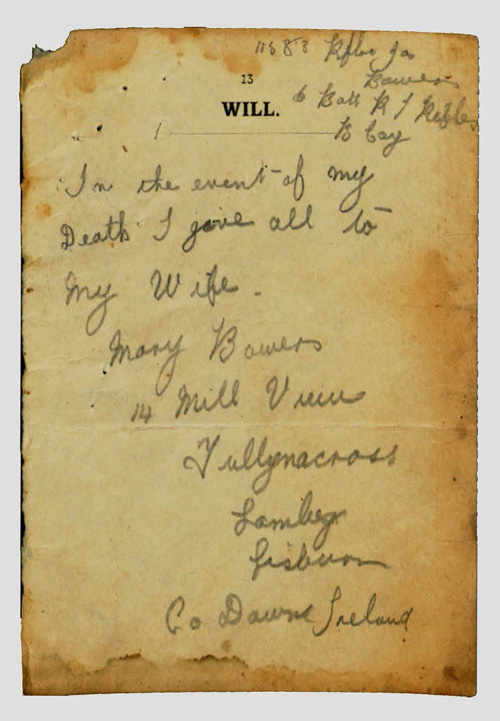 11688 Rflm Jas
Bowers
13
6 Batt R I Rifles
WILL.
B Coy
In the event of my
Death I give all to
My Wife.
Mary Bowers
14 Mill View
Tullynacross
Lambeg
Lisburn
Co Downe Ireland